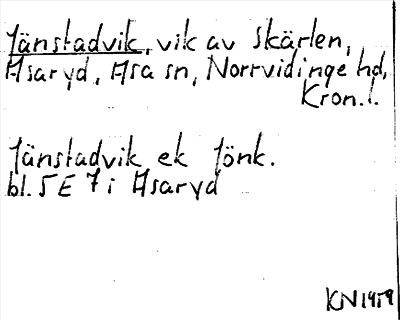 Jänstadvik, vik av Skärlen,
Asaryd, Asa sn, Norrvidinge hd,
Kron.l.
Jänstadvik ek Jönk.
bl. 5 E 7 i Asaryd
KN 1959